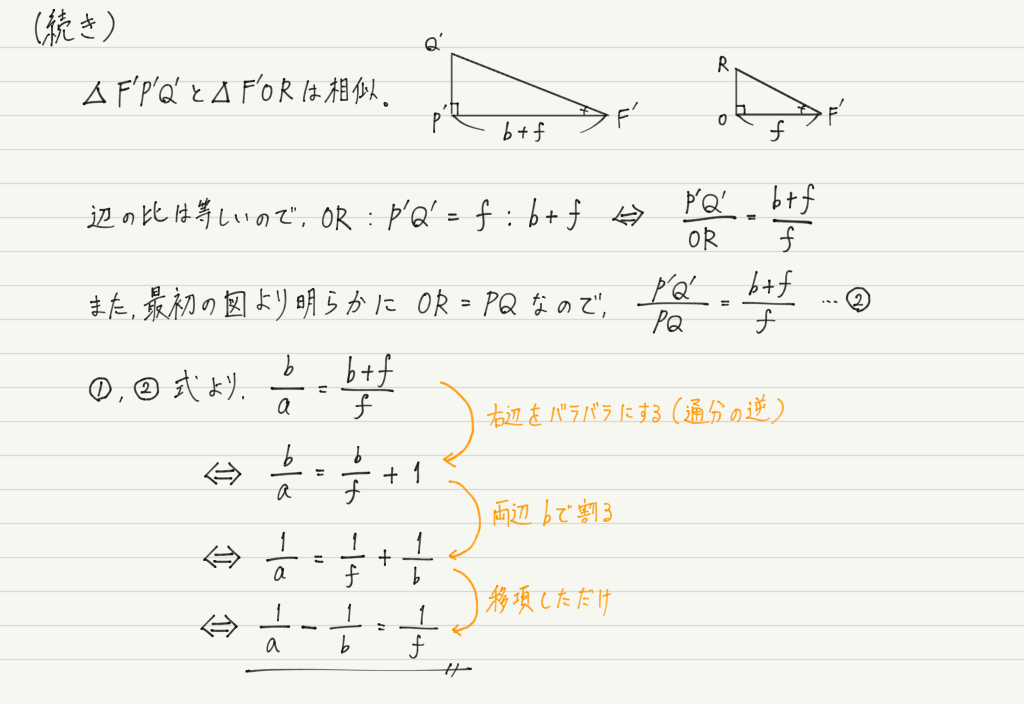 (続き)
△F'P'Q'と△F'ORは相似.
Q'
P'
b+f
F'
R
O
f
F'
辺の比は等しいので, OR : P'Q' = f : b+f ⇔ P'Q'/OR = b+f/f
また, 最初の図より明らかに OR = PQ なので, P'Q'/PQ = b+f/f … ②
①, ② 式より, b/a = b+f/f
右辺をバラバラにする (通分の逆)
⇔ b/a = b/f + 1
両辺 bで割る
⇔ 1/a = 1/f + 1/b
移項しただけ
⇔ 1/a - 1/b = 1/f